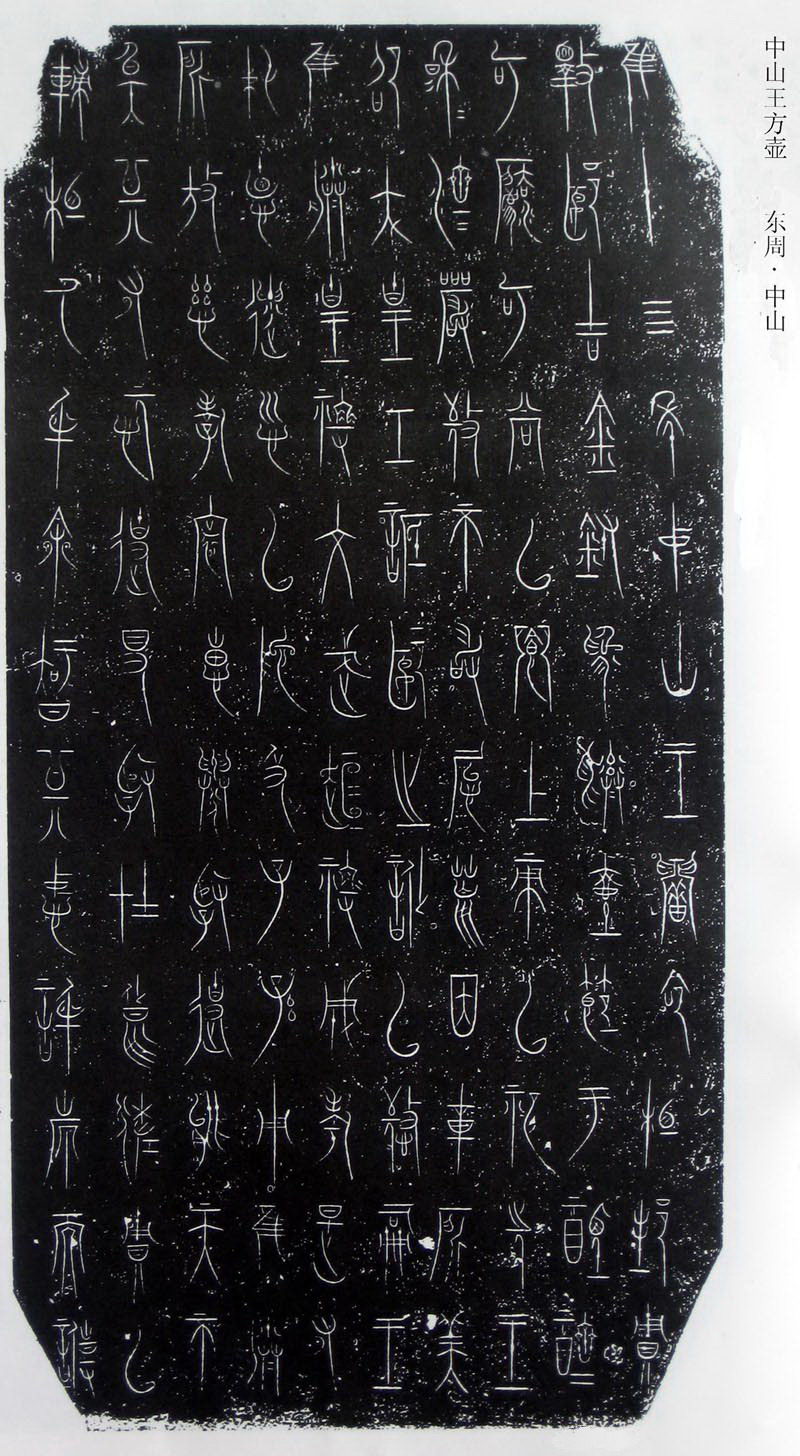 中山王方壶 东周·中山
隹十四年中山王䁐命相邦賙
擇郾吉金鑄為彝壺節于禋齊
可法可尚以饗上帝以祀先王
穆=濟=嚴敬不敢怠荒因載所美
卲大皇工詆郾之訛以警嗣王
隹朕皇祖文武桓祖成考是又
純德遺訓以施及子孫用隹朕
所放慈孝寰惠舉賢使能天不
斁其又忨使得賢在良佐賙以
輔相氒身余智其忠信施而專